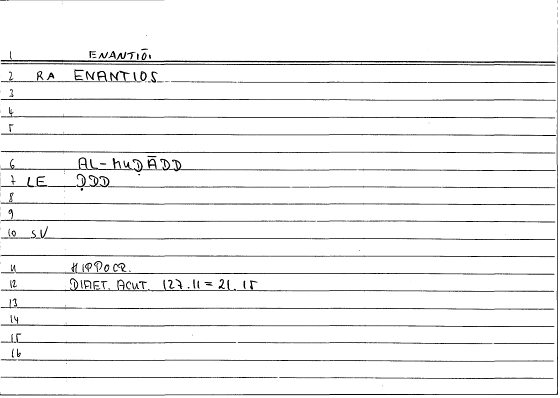 1 ENANTIŌI
2 RA ENANTIOS
3
4
5
6 AL-MUḌĀDD
7 LE ḌDD
8
9
10 SV
11 HIPPOCR.
12 DIAET. ACUT. 127.11 = 21.15
13
14
15
16